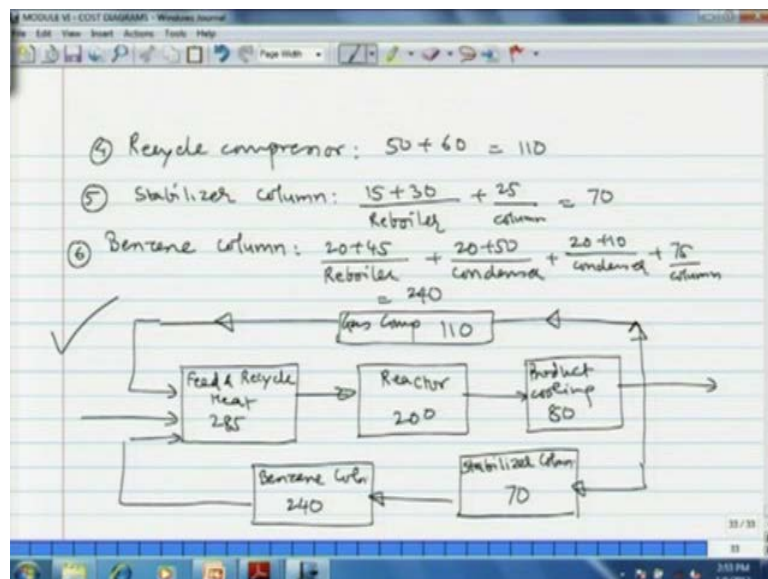 MODULE VI - COST DIAGRAMS - Windows Journal
File Edit View Insert Actions Tools Help
Page Width
④ Recycle compressor: 50 + 60 = 110
⑤ Stabilizer column: 15 + 30 + 25 = 70
Reboiler column
⑥ Benzene column: 20+45 + 20+50 + 20+10 + 75
Reboiler condenser condenser column
= 240
Gas Comp 110
Feed & Recycle Heat 285
Reactor 200
Product cooling 80
Benzene Coln 240
Stabilizer Colmn 70
33 / 33
33
2:53 PM